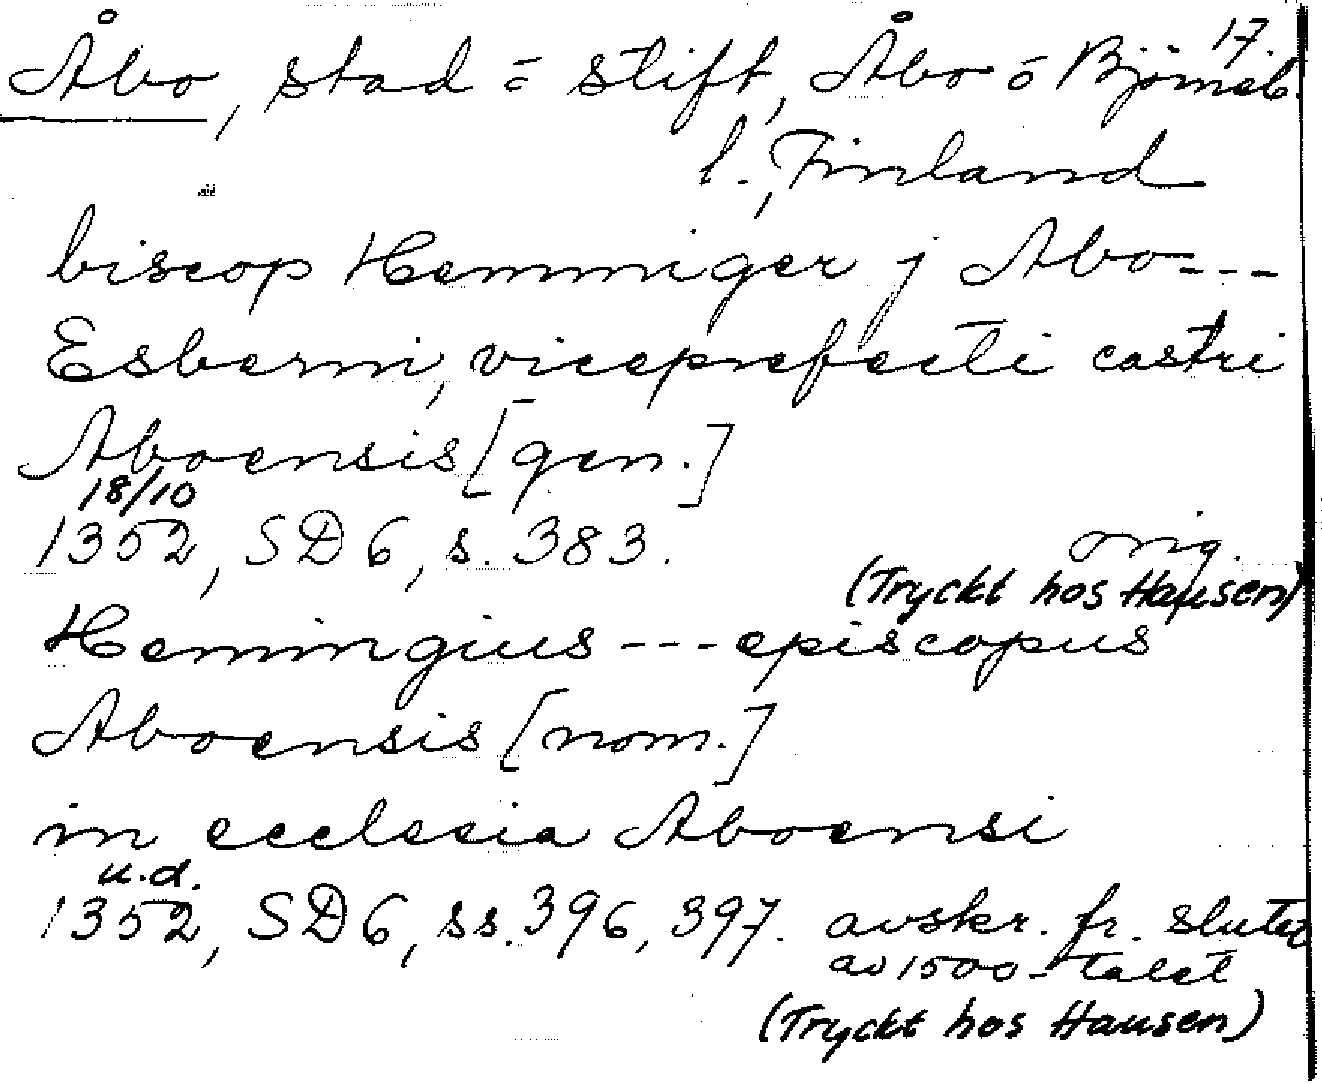 17.
Åbo, stad o. stift, Åbo o Björneb.
l., Finland
biscop Hemmiger j Abo---
Esberni, viceprefecti castri
Aboensis [gen.]
18/10
1352, SD6, s. 383. orig.
(Tryckt hos Hausen)
Hemingius --- episcopus
Aboensis [nom.]
in ecclesia Aboensi
u.d.
1352, SD6, ss. 396, 397. avskr. fr. slutet
av 1500-talet
(Tryckt hos Hausen)